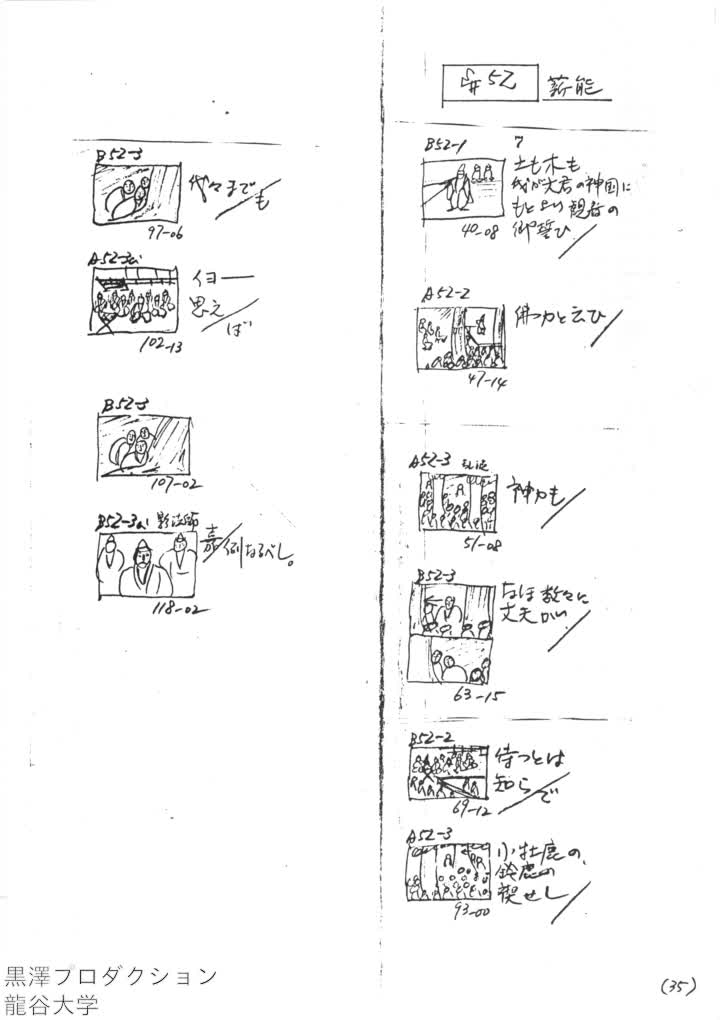 #52 薪能
B52-1
土も木も
我が大君の神国に
もとより観音の
御誓ひ
40-08
A52-2
佛力と云ひ
47-14
A52-3
神力も
51-08
B52-3
なほ数々に
丈夫が
63-15
B52-2
待つとは
知らで
69-12
A52-3
小牡鹿の、
鈴鹿の
禊せし
93-00
B52-3
代々までも
97-06
A52-3
イヨー
思えば
102-13
B52-3
107-02
B52-3 影法師
嘉例なるべし。
118-02
(35)
黒澤プロダクション
龍谷大学